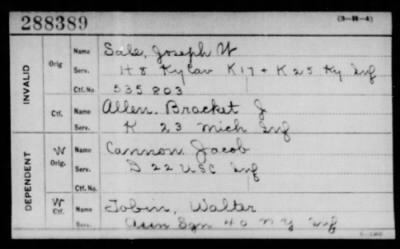 288389
(3-H-4)
INVALID
Orig
Name Sale, Joseph W
Serv. H 8 Ky Cav K 17 + K 25 Ky Inf
Ctf. No. 535 803
Ctf.
Name Allen Bracket J
Serv. K 23 Mich Inf
DEPENDENT
W
Orig.
Name Cannon Jacob
Serv. D 22 USC Inf
Ctf. No.
W
Ctf.
Name Tobin, Walter
Serv. Sgn 40 N Y Inf